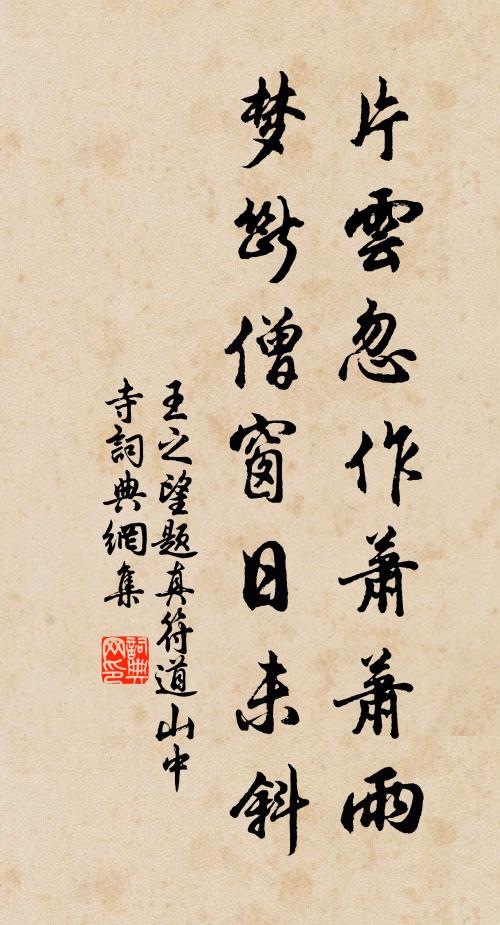 片雲忽作蕭蕭雨
梦斷僧窗日未斜
王之望題真符道山中
寺詞典網集
詞典網印